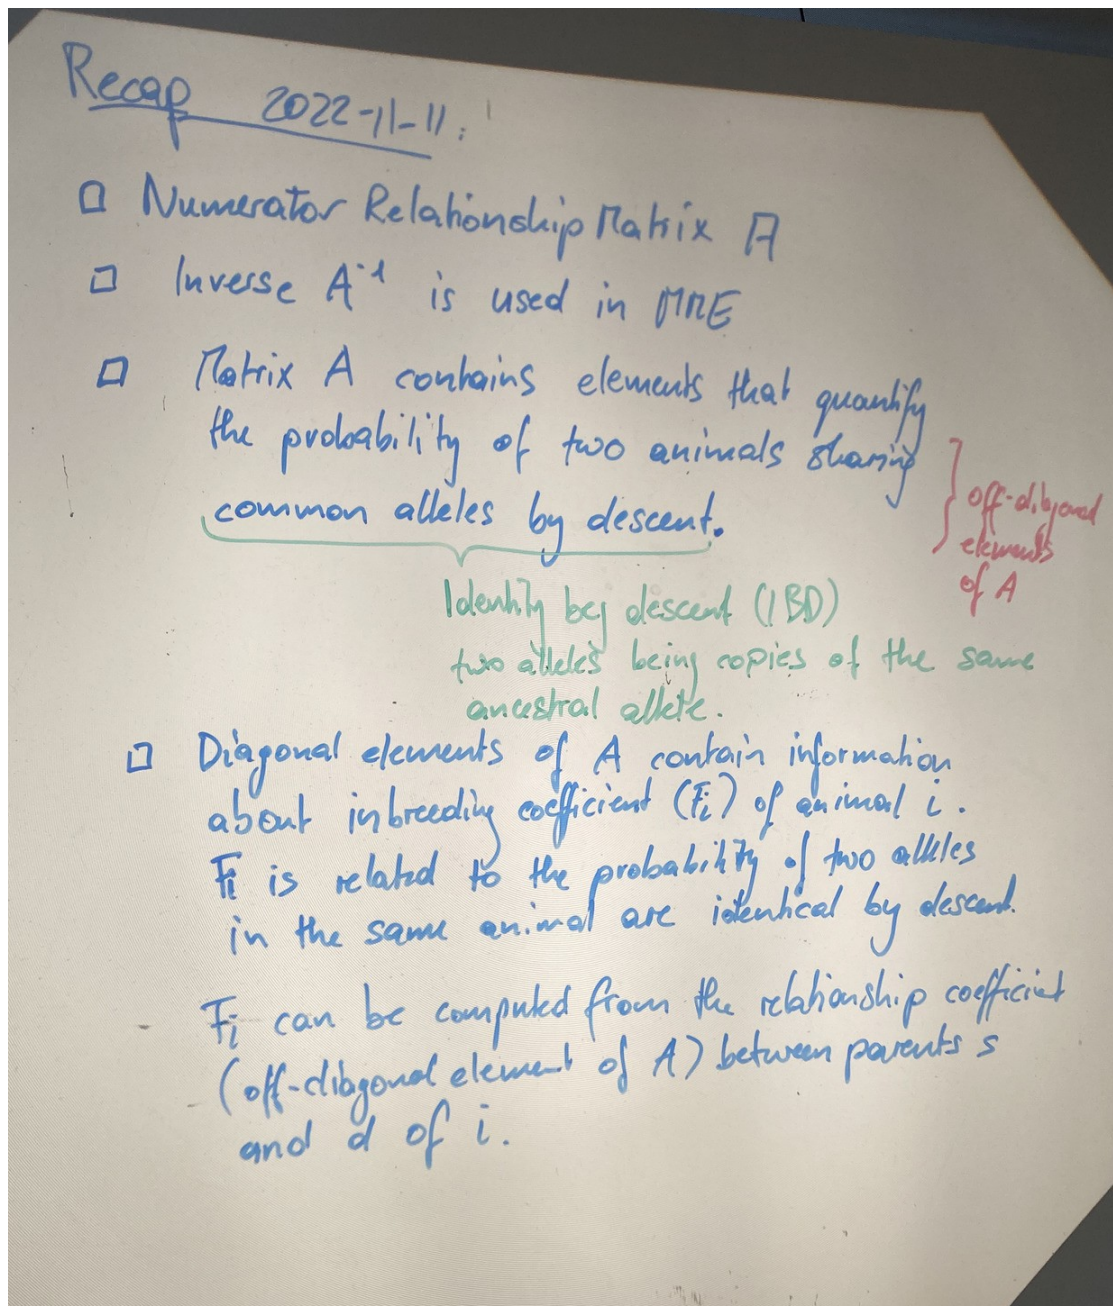 Recap 2022-11-11:
□ Numerator Relationship Matrix A
□ Inverse A⁻¹ is used in MME
□ Matrix A contains elements that quantify
the probability of two animals sharing
common alleles by descent.
off-diagonal
elements
of A
Identity by descent (IBD)
two alleles being copies of the same
ancestral allele.
□ Diagonal elements of A contain information
about inbreeding coefficient (Fi) of animal i.
Fi is related to the probability of two alleles
in the same animal are identical by descent.
Fi can be computed from the relationship coefficient
(off-diagonal element of A) between parents s
and d of i.